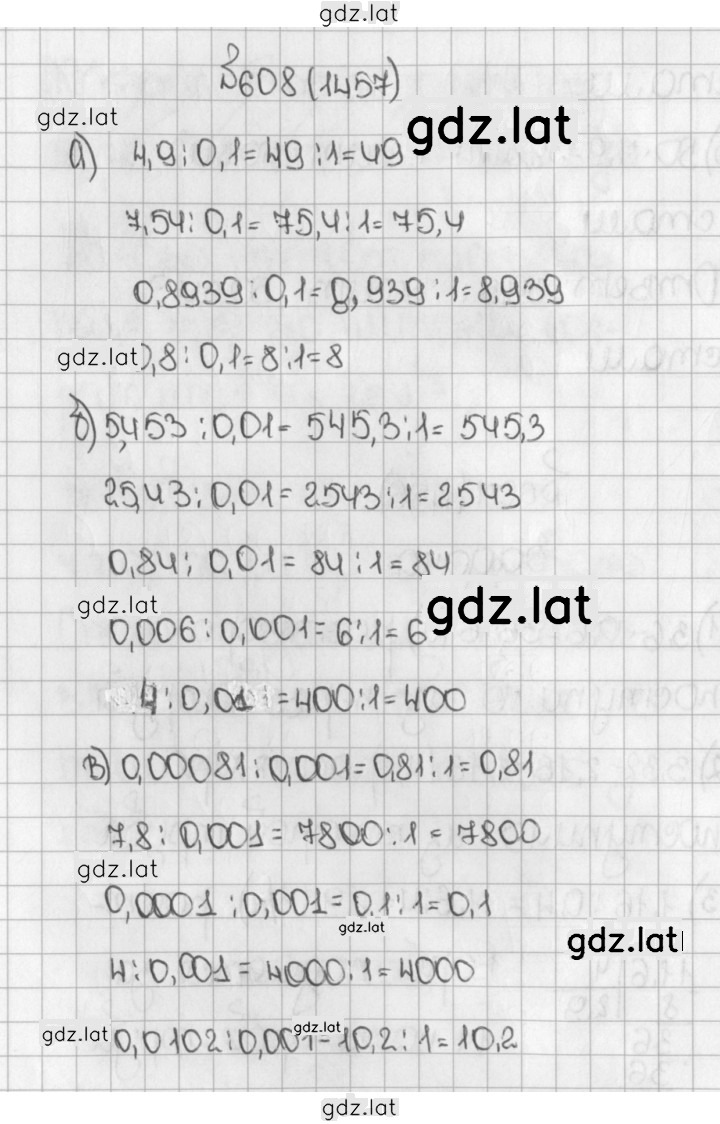 gdz.lat
№608 (1457)
gdz.lat
gdz.lat
а) 4,9 : 0,1 = 49 : 1 = 49
7,54 : 0,1 = 75,4 : 1 = 75,4
0,8939 : 0,1 = 8,939 : 1 = 8,939
gdz.lat ,8 : 0,1 = 8 : 1 = 8
б) 5,453 : 0,01 = 545,3 : 1 = 545,3
25,43 : 0,01 = 2543 : 1 = 2543
0,84 : 0,01 = 84 : 1 = 84
gdz.lat
gdz.lat
0,006 : 0,001 = 6 : 1 = 6
4 : 0,01 = 400 : 1 = 400
в) 0,00081 : 0,001 = 0,81 : 1 = 0,81
7,8 : 0,001 = 7800 : 1 = 7800
gdz.lat
0,0001 : 0,001 = 0,1 : 1 = 0,1
gdz.lat
gdz.lat
4 : 0,001 = 4000 : 1 = 4000
gdz.lat
gdz.lat
0,0102 : 0,001 = 10,2 : 1 = 10,2
gdz.lat